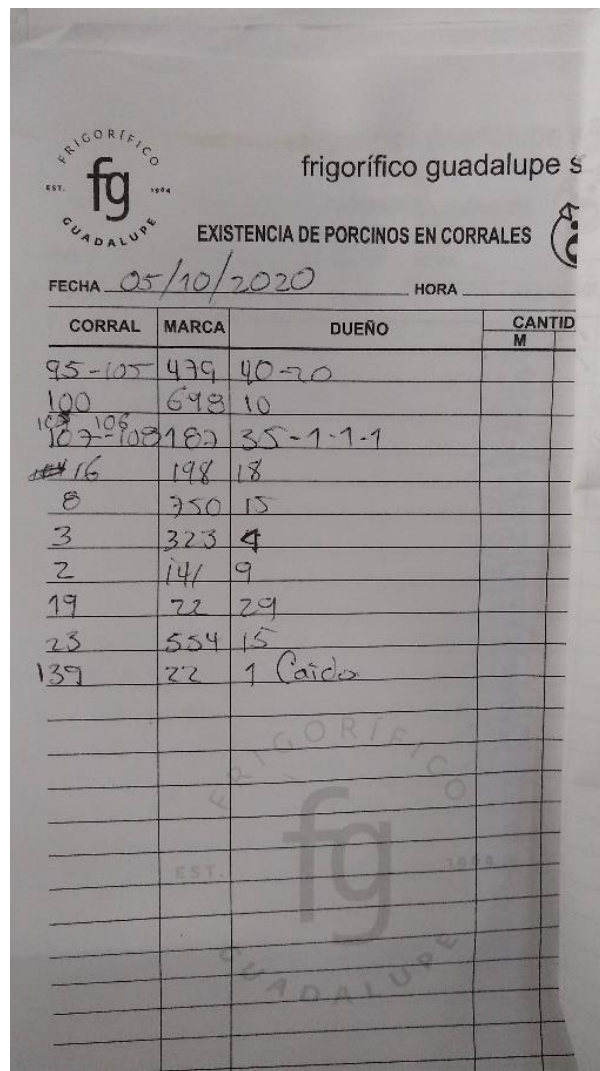 FRIGORÍFICO
fg
EST. 1994
GUADALUPE
frigorífico guadalupe s
EXISTENCIA DE PORCINOS EN CORRALES
FECHA 05/10/2020 HORA
CORRAL MARCA DUEÑO CANTID
M
95-105 479 40-20
100 698 10
106
107-108 187 35-1-1-1
16 198 18
8 750 15
3 323 4
2 141 9
19 22 29
23 554 15
139 22 1 Caido
FRIGORÍFICO
EST. 1994
fg
GUADALUPE